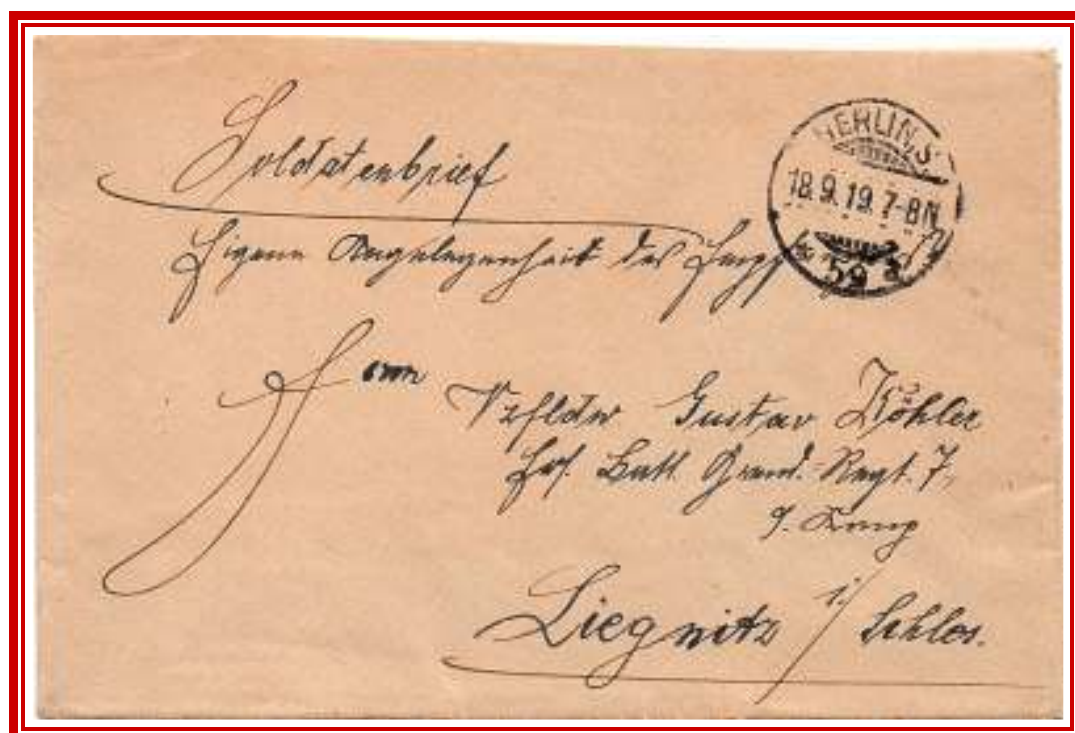 Soldatenbrief
Eigene Angelegenheit des
BERLIN, S.
18.9.19. 7-8 N.
* 59 *
Herrn
Vzfldw Gustav Köhler
Batl. Grend.-Regt. 7,
Komp
Liegnitz i/ Schles.